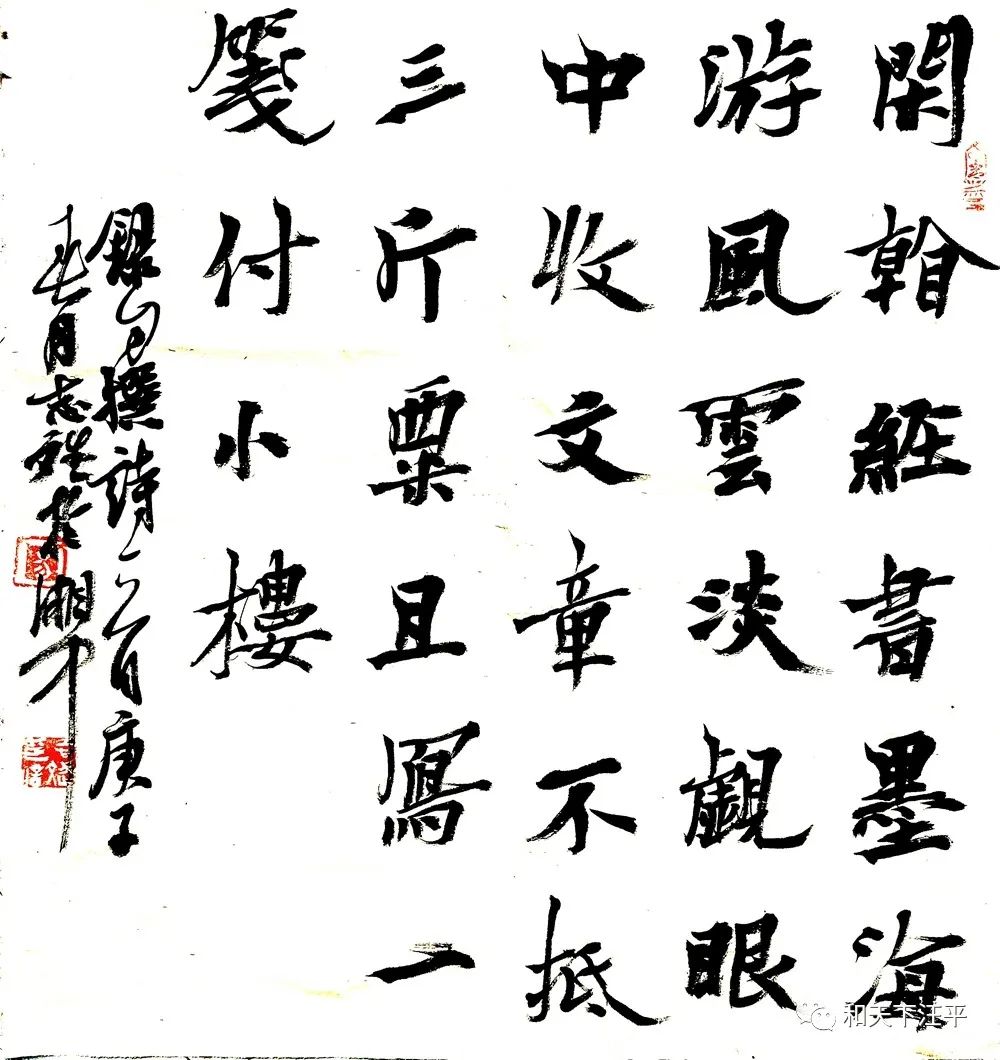 閑翰經書墨海
游風雲淡觀眼
中收文章不抵
三斤粟且寫一
箋付小樓
錄自撰詩一首庚子
春月志於湖
和天下汪平